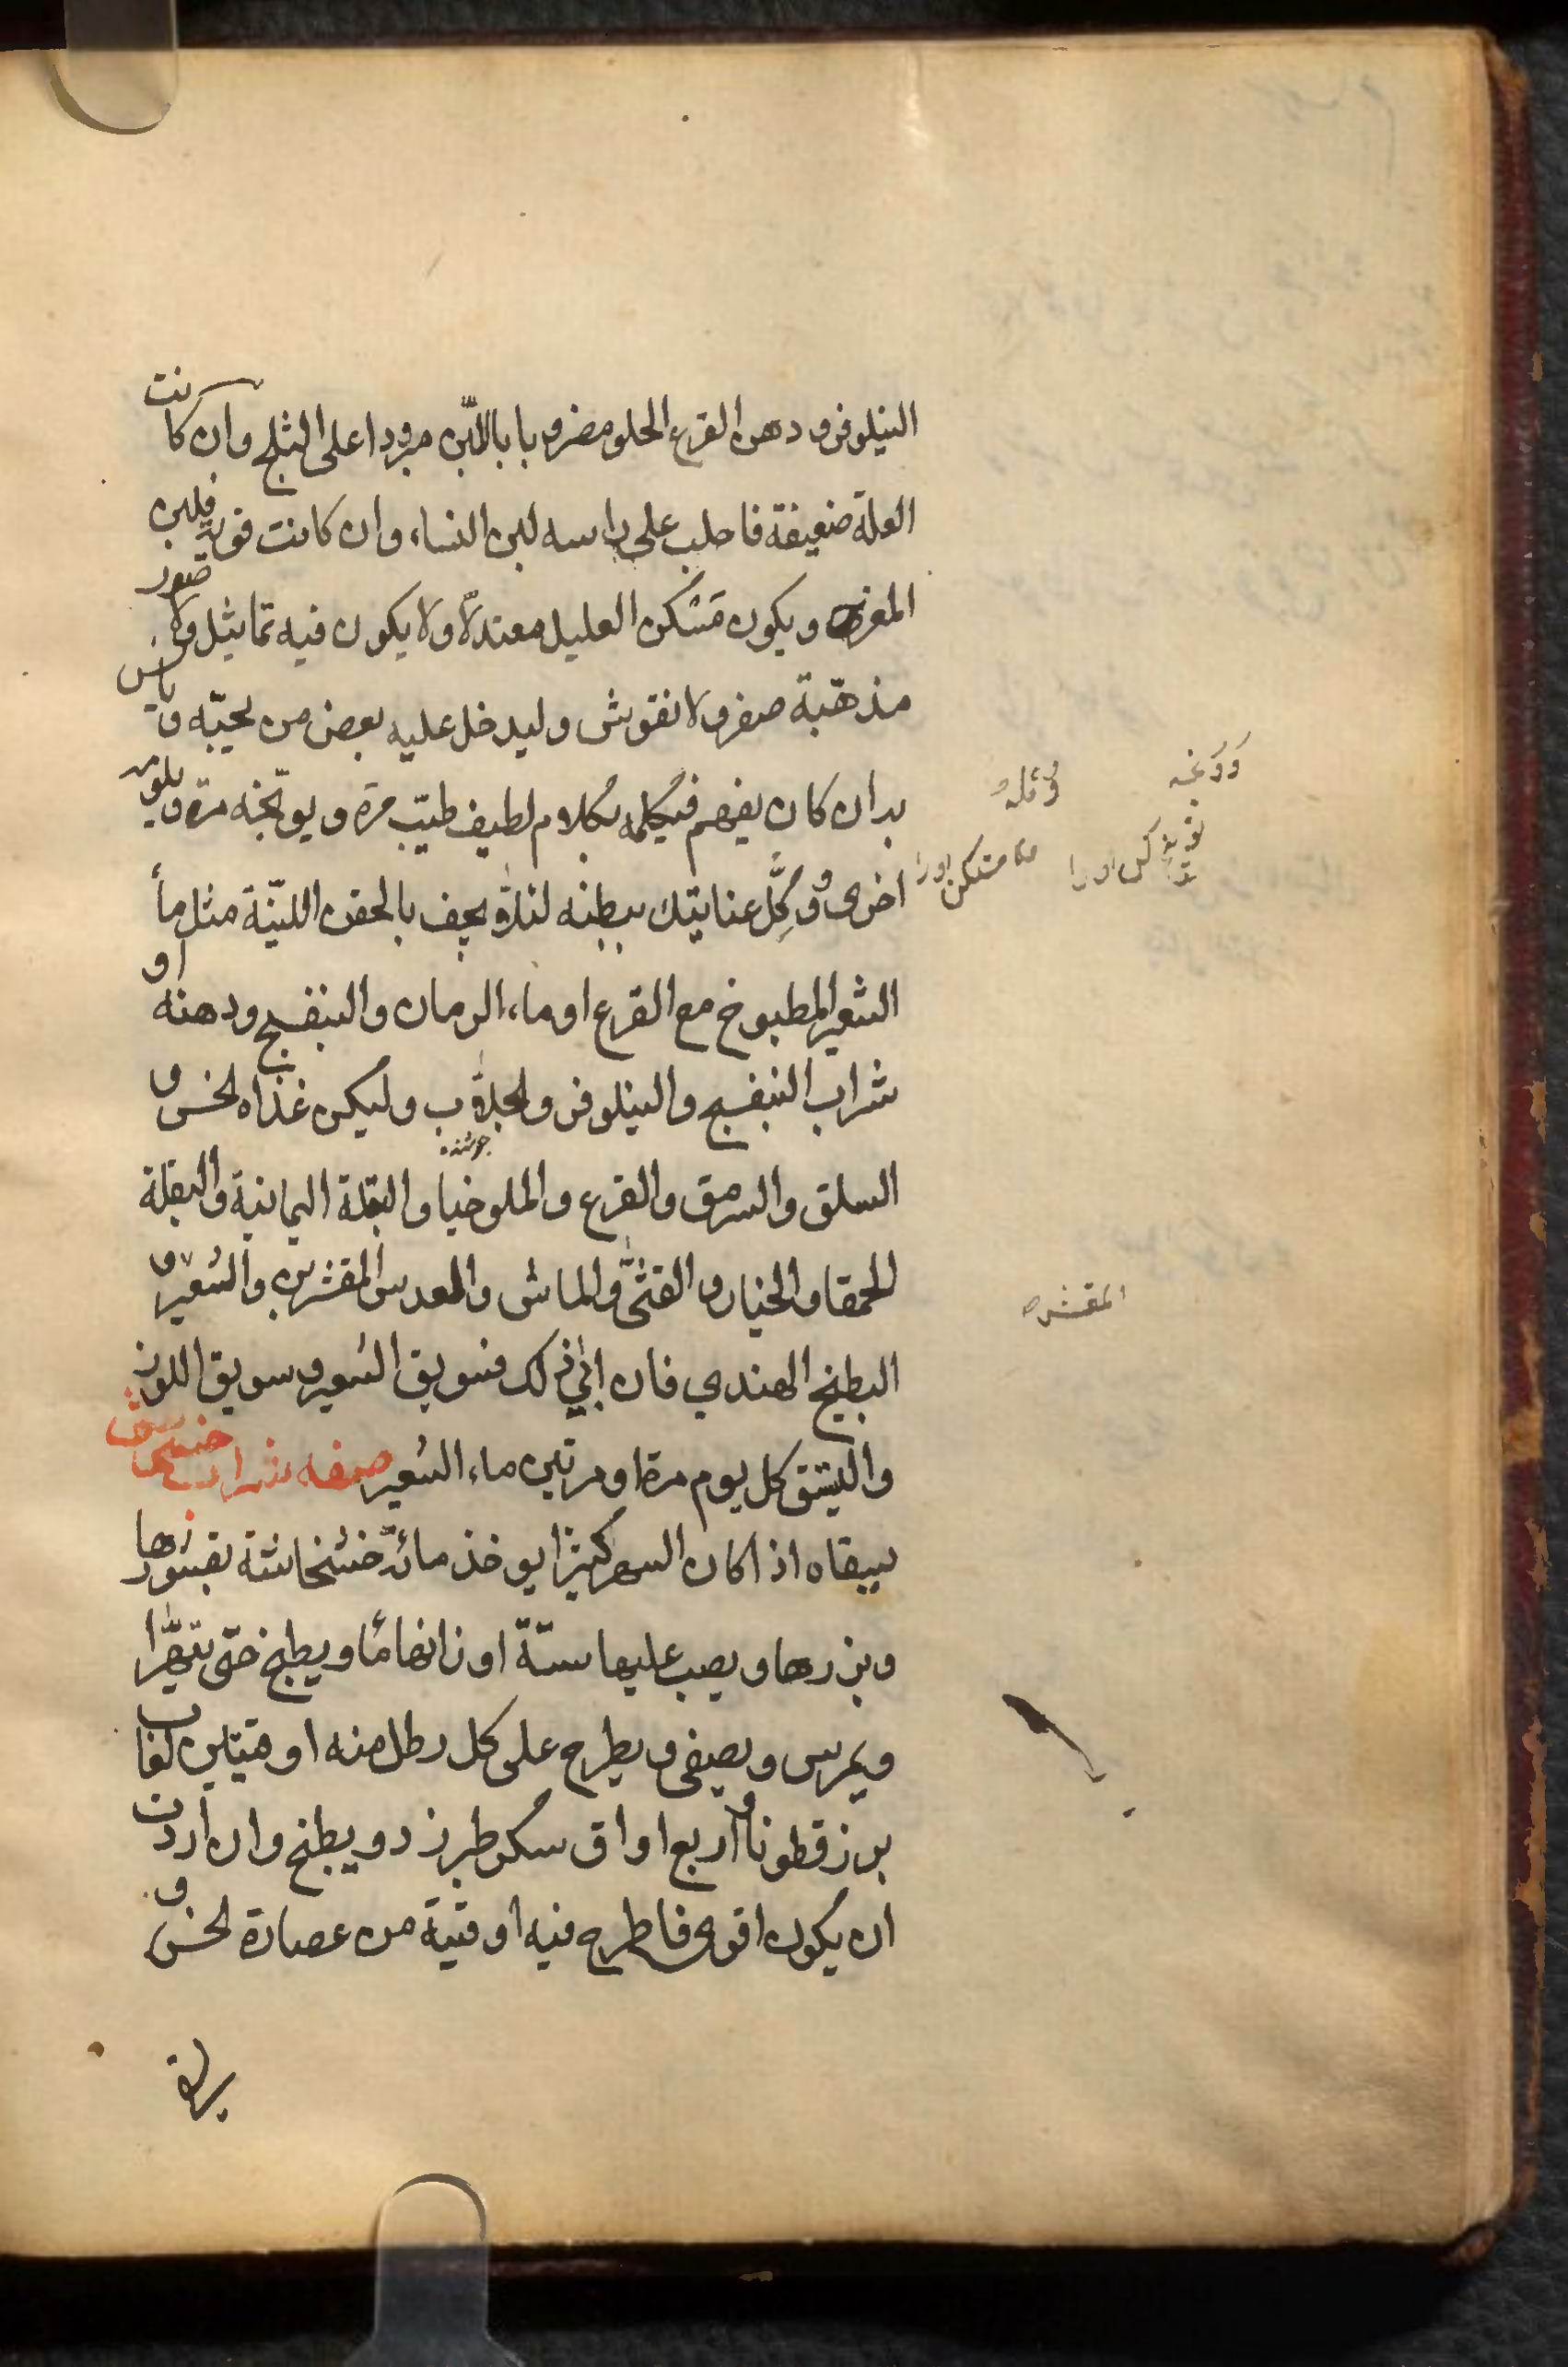 النيلوفر و دهن القرع الحلو مضروبا باللبن مبردا على الثلج وان كانت
العلة ضعيفة فاحلب على راسه لبن النساء وان كانت قوية فلبن
المعز ويكون مَسْكن العليل معتدلاً ولا يكون فيه تماثيل ولا صور
مذهّبة صفر ولا نقوش وليدخل عليه بعض من يحبّه ويانس
به ان كان يفهم فيكلمه بكلام لطيف طيّب مرّة ويوبّخه مرة ويلومه
اخرى ووكِّل عنايتك ببطنه لئلا يجف بالحقن الليّنة مثل مأ
الشعير المطبوخ مع القرع او ماء الرمان والبنفسج ودهنه او
شراب البنفسج والنيلوفر والجلاب وليكن غذاه الخس و
السلق والسرمق والقرع والملوخيا والبقلة اليمانية والبقلة
الحمقا والخيار والقثى والماش والعدس المقشرين والشعير و
البطيخ الهندي فان ابى ذلك فسويق الشعير وسويق اللوز
واليسق كل يوم مرة او مرتين ماء الشعير صفه شراب خشخاش
يسقاه اذا كان السهر كثيرا يوخذ مائة خشخاشة بقشورها
وبزرها ويصب عليها ستة اوزانها مًا ويطبخ حتى يتهرّا
ويمرس ويصفى ويطرح على كل رطل منه اوقيتين لعاب
بزرقطونا واربع اواق سكر طبرزد ويطبخ وان اردت
ان يكون اقوى فاطرح فيه اوقية من عصارة الخس و
المقشره